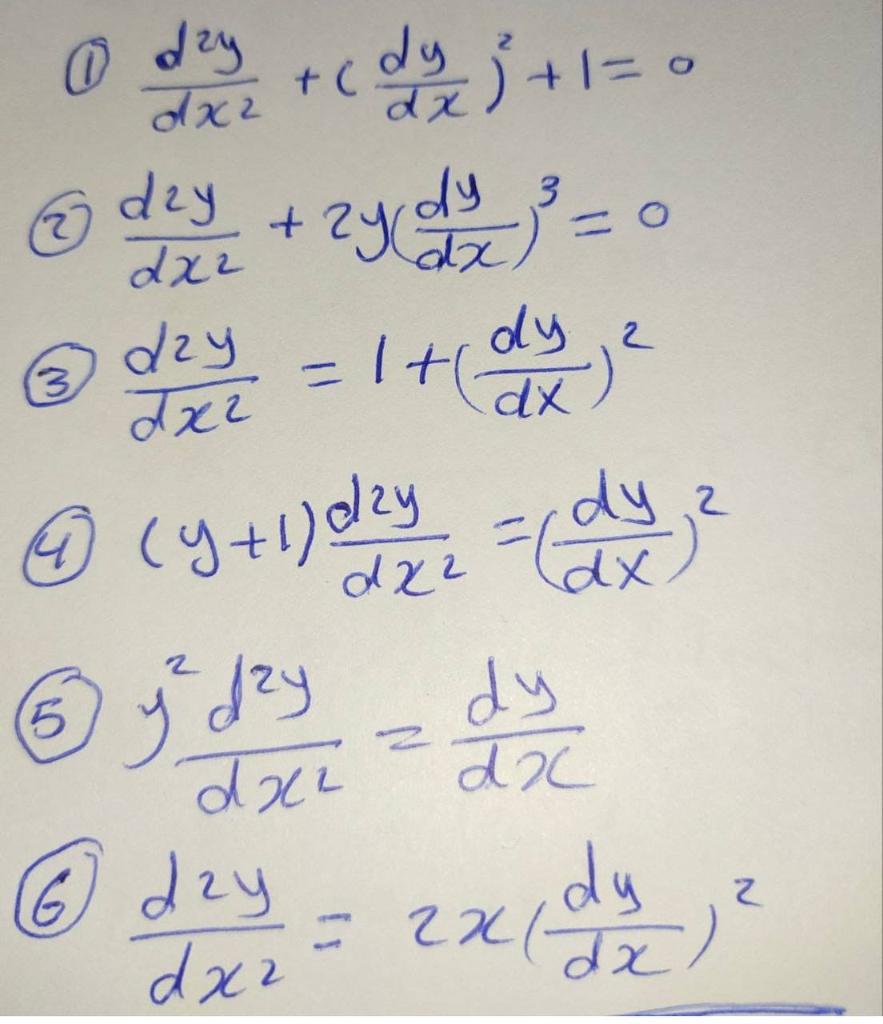 ① d²y/dx² + (dy/dx)² + 1 = 0
② d²y/dx² + 2y(dy/dx)³ = 0
③ d²y/dx² = 1 + (dy/dx)²
④ (y+1) d²y/dx² = (dy/dx)²
⑤ y² d²y/dx² = dy/dx
⑥ d²y/dx² = 2x(dy/dx)²